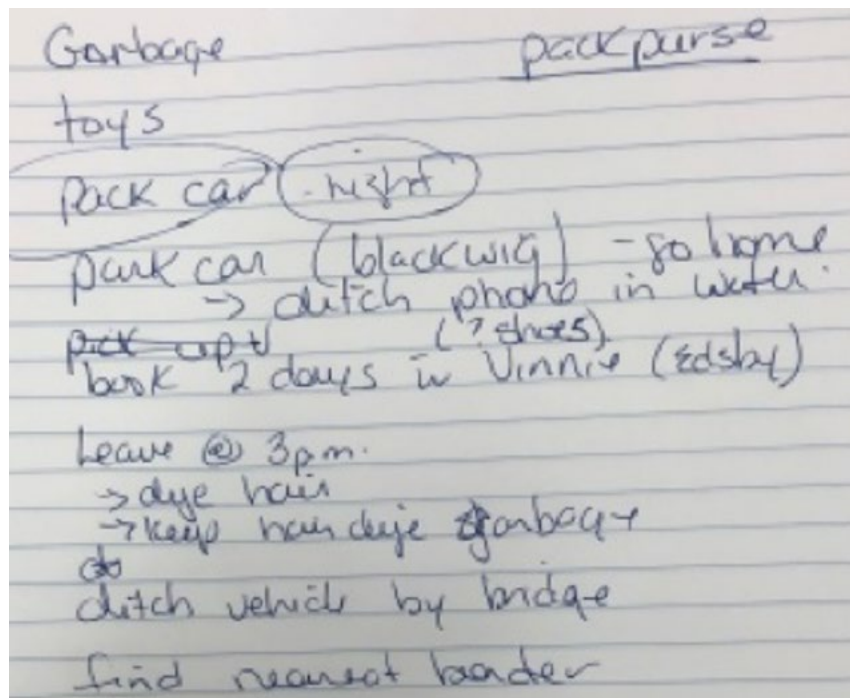 Garbage packpurse
toys
pack car night
park car (black wig) - go home
-> ditch phone in water.
pick up (? shoes)
book 2 days in Vinnie (Edsby)
Leave @ 3pm.
-> dye hair
-> keep hair dye garbage
do
ditch vehicle by bridge
find nearest boarder